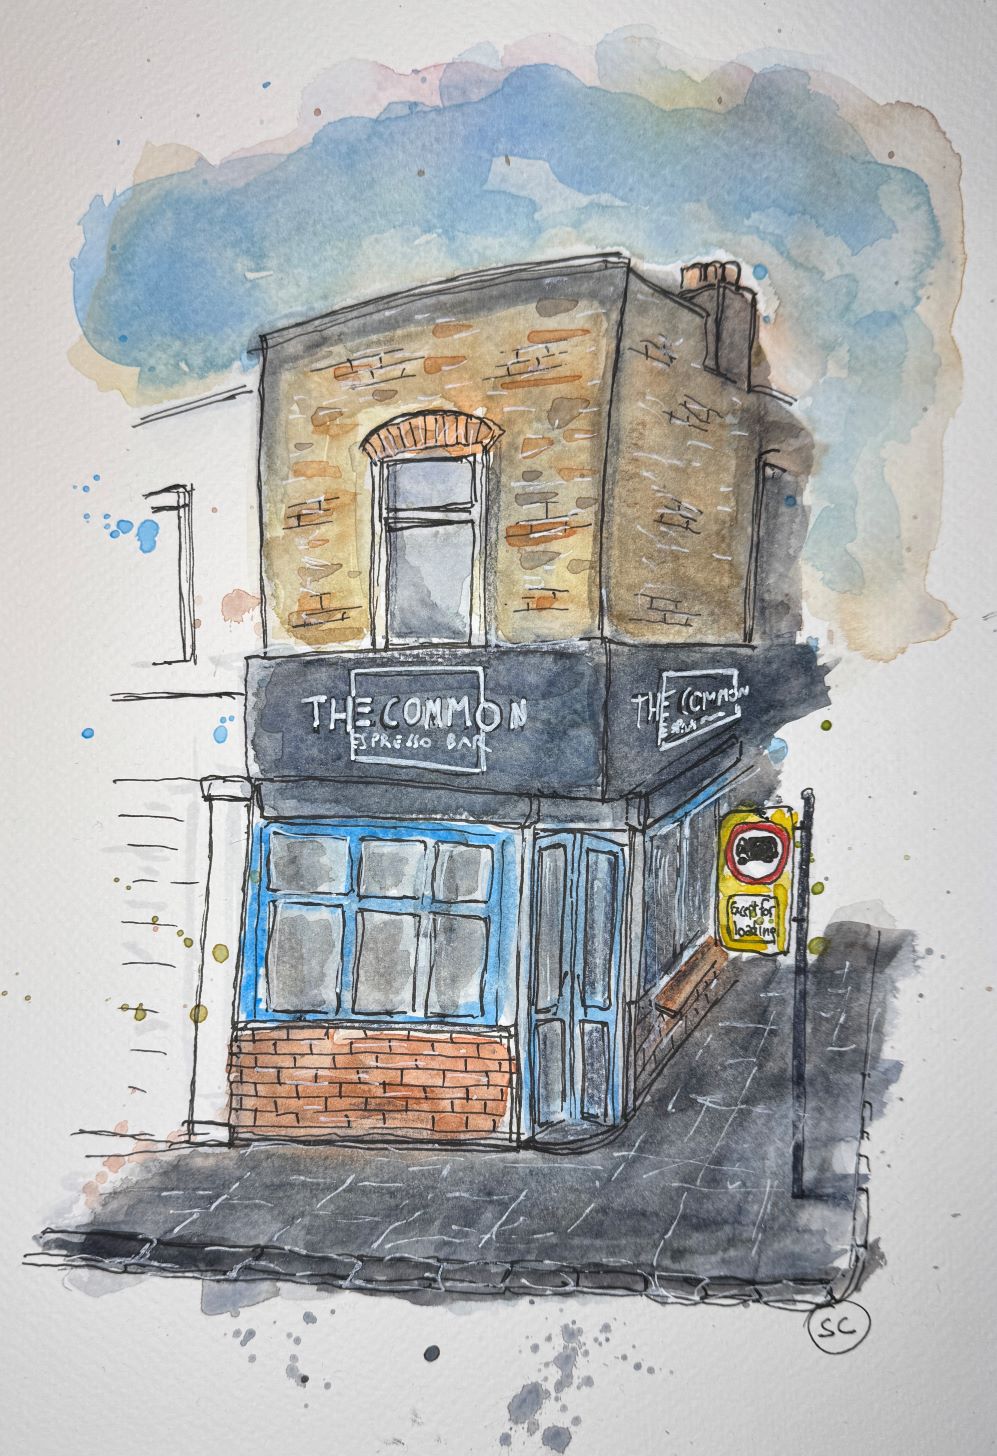 THE COMMON
ESPRESSO BAR
THE COMMON
Except for
loading
SC